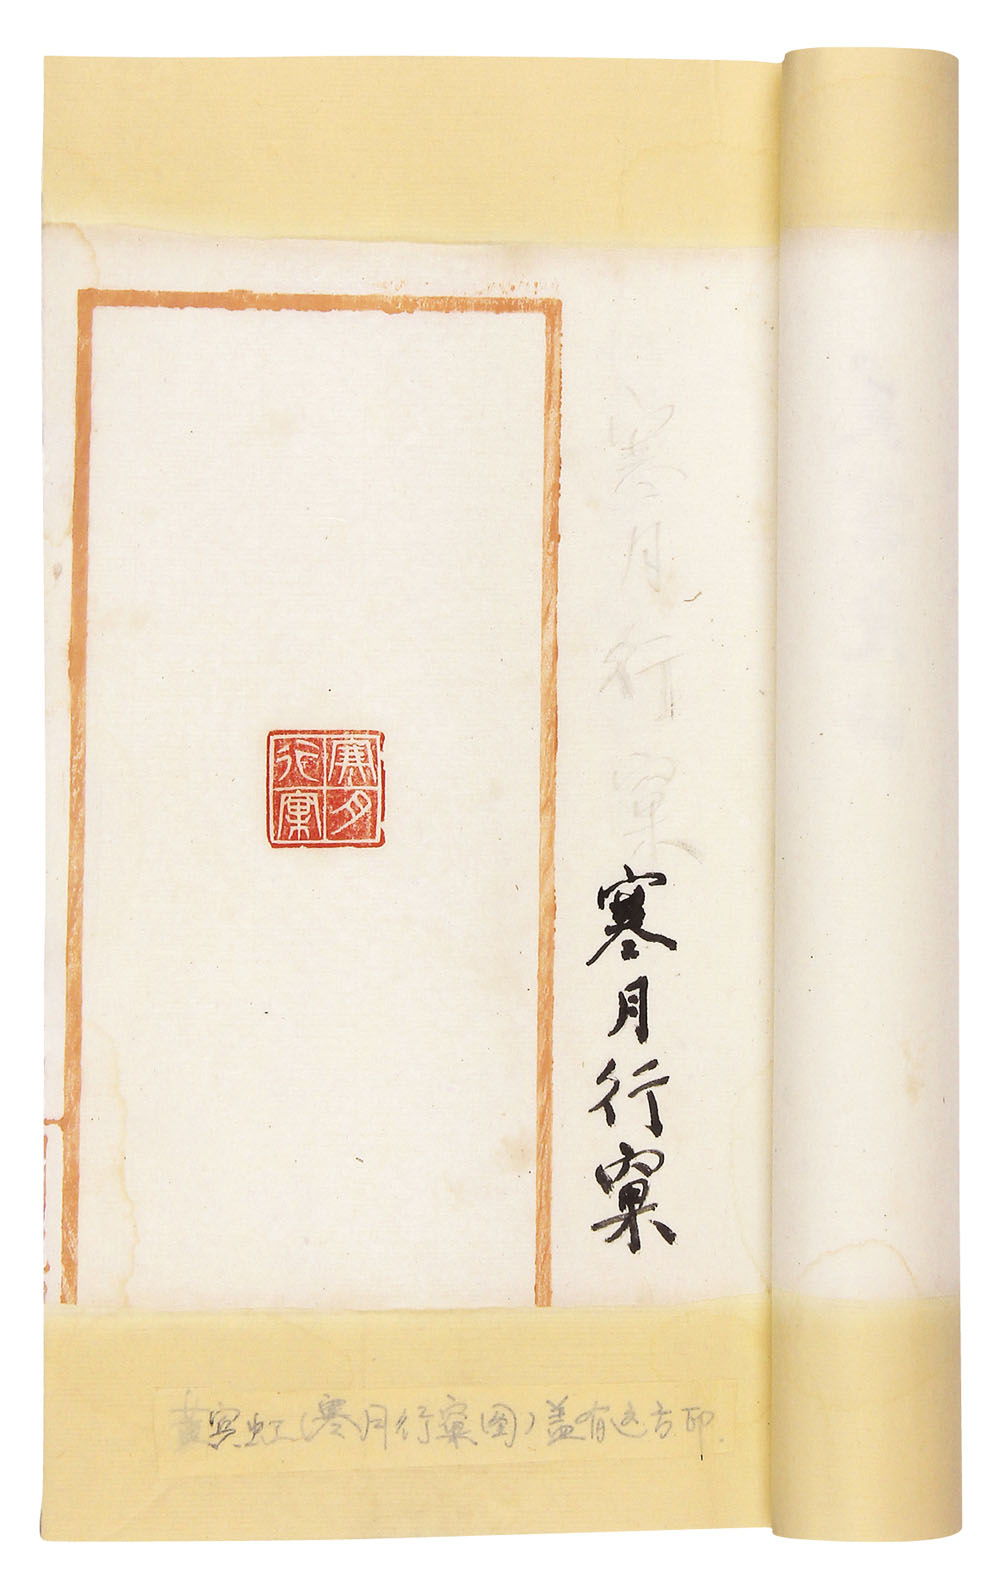 寒月行窠
寒月行窠
寒月行窠
黄宾虹《寒月行窠图》盖有这方印